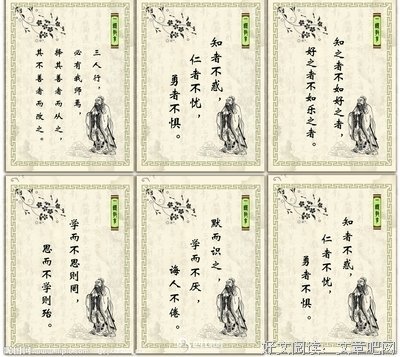 三人行，
必有我师焉，
择其善者而从之，
其不善者而改之。
知者不惑，
仁者不忧，
勇者不惧。
知之者不如好之者，
好之者不如乐之者。
学而不思则罔，
思而不学则殆。
默而识之，
学而不厌，
诲人不倦。
知者不惑，
仁者不忧，
勇者不惧。